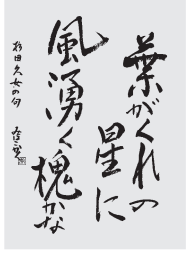 葉がくれの
星に
風湧く槐かな
杉田久女の句